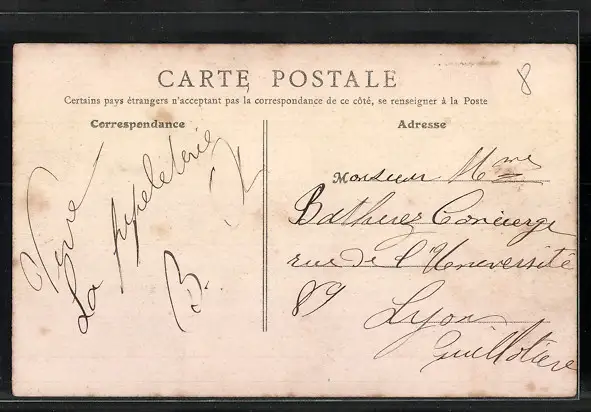 8
CARTE POSTALE
Certains pays étrangers n'acceptant pas la correspondance de ce côté, se renseigner à la Poste
Correspondance
Vive
La papeleterie
B. Z
Adresse
Monsieur Mmes
Batherez Concierge
rue de l'Univerversité
89
Lyon
Guillotiere